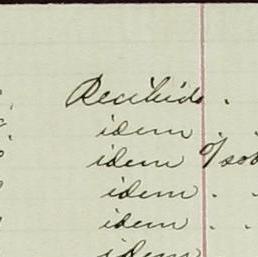 Recibido .
idem . .
idem o/sob
idem . .
idem . .
idem